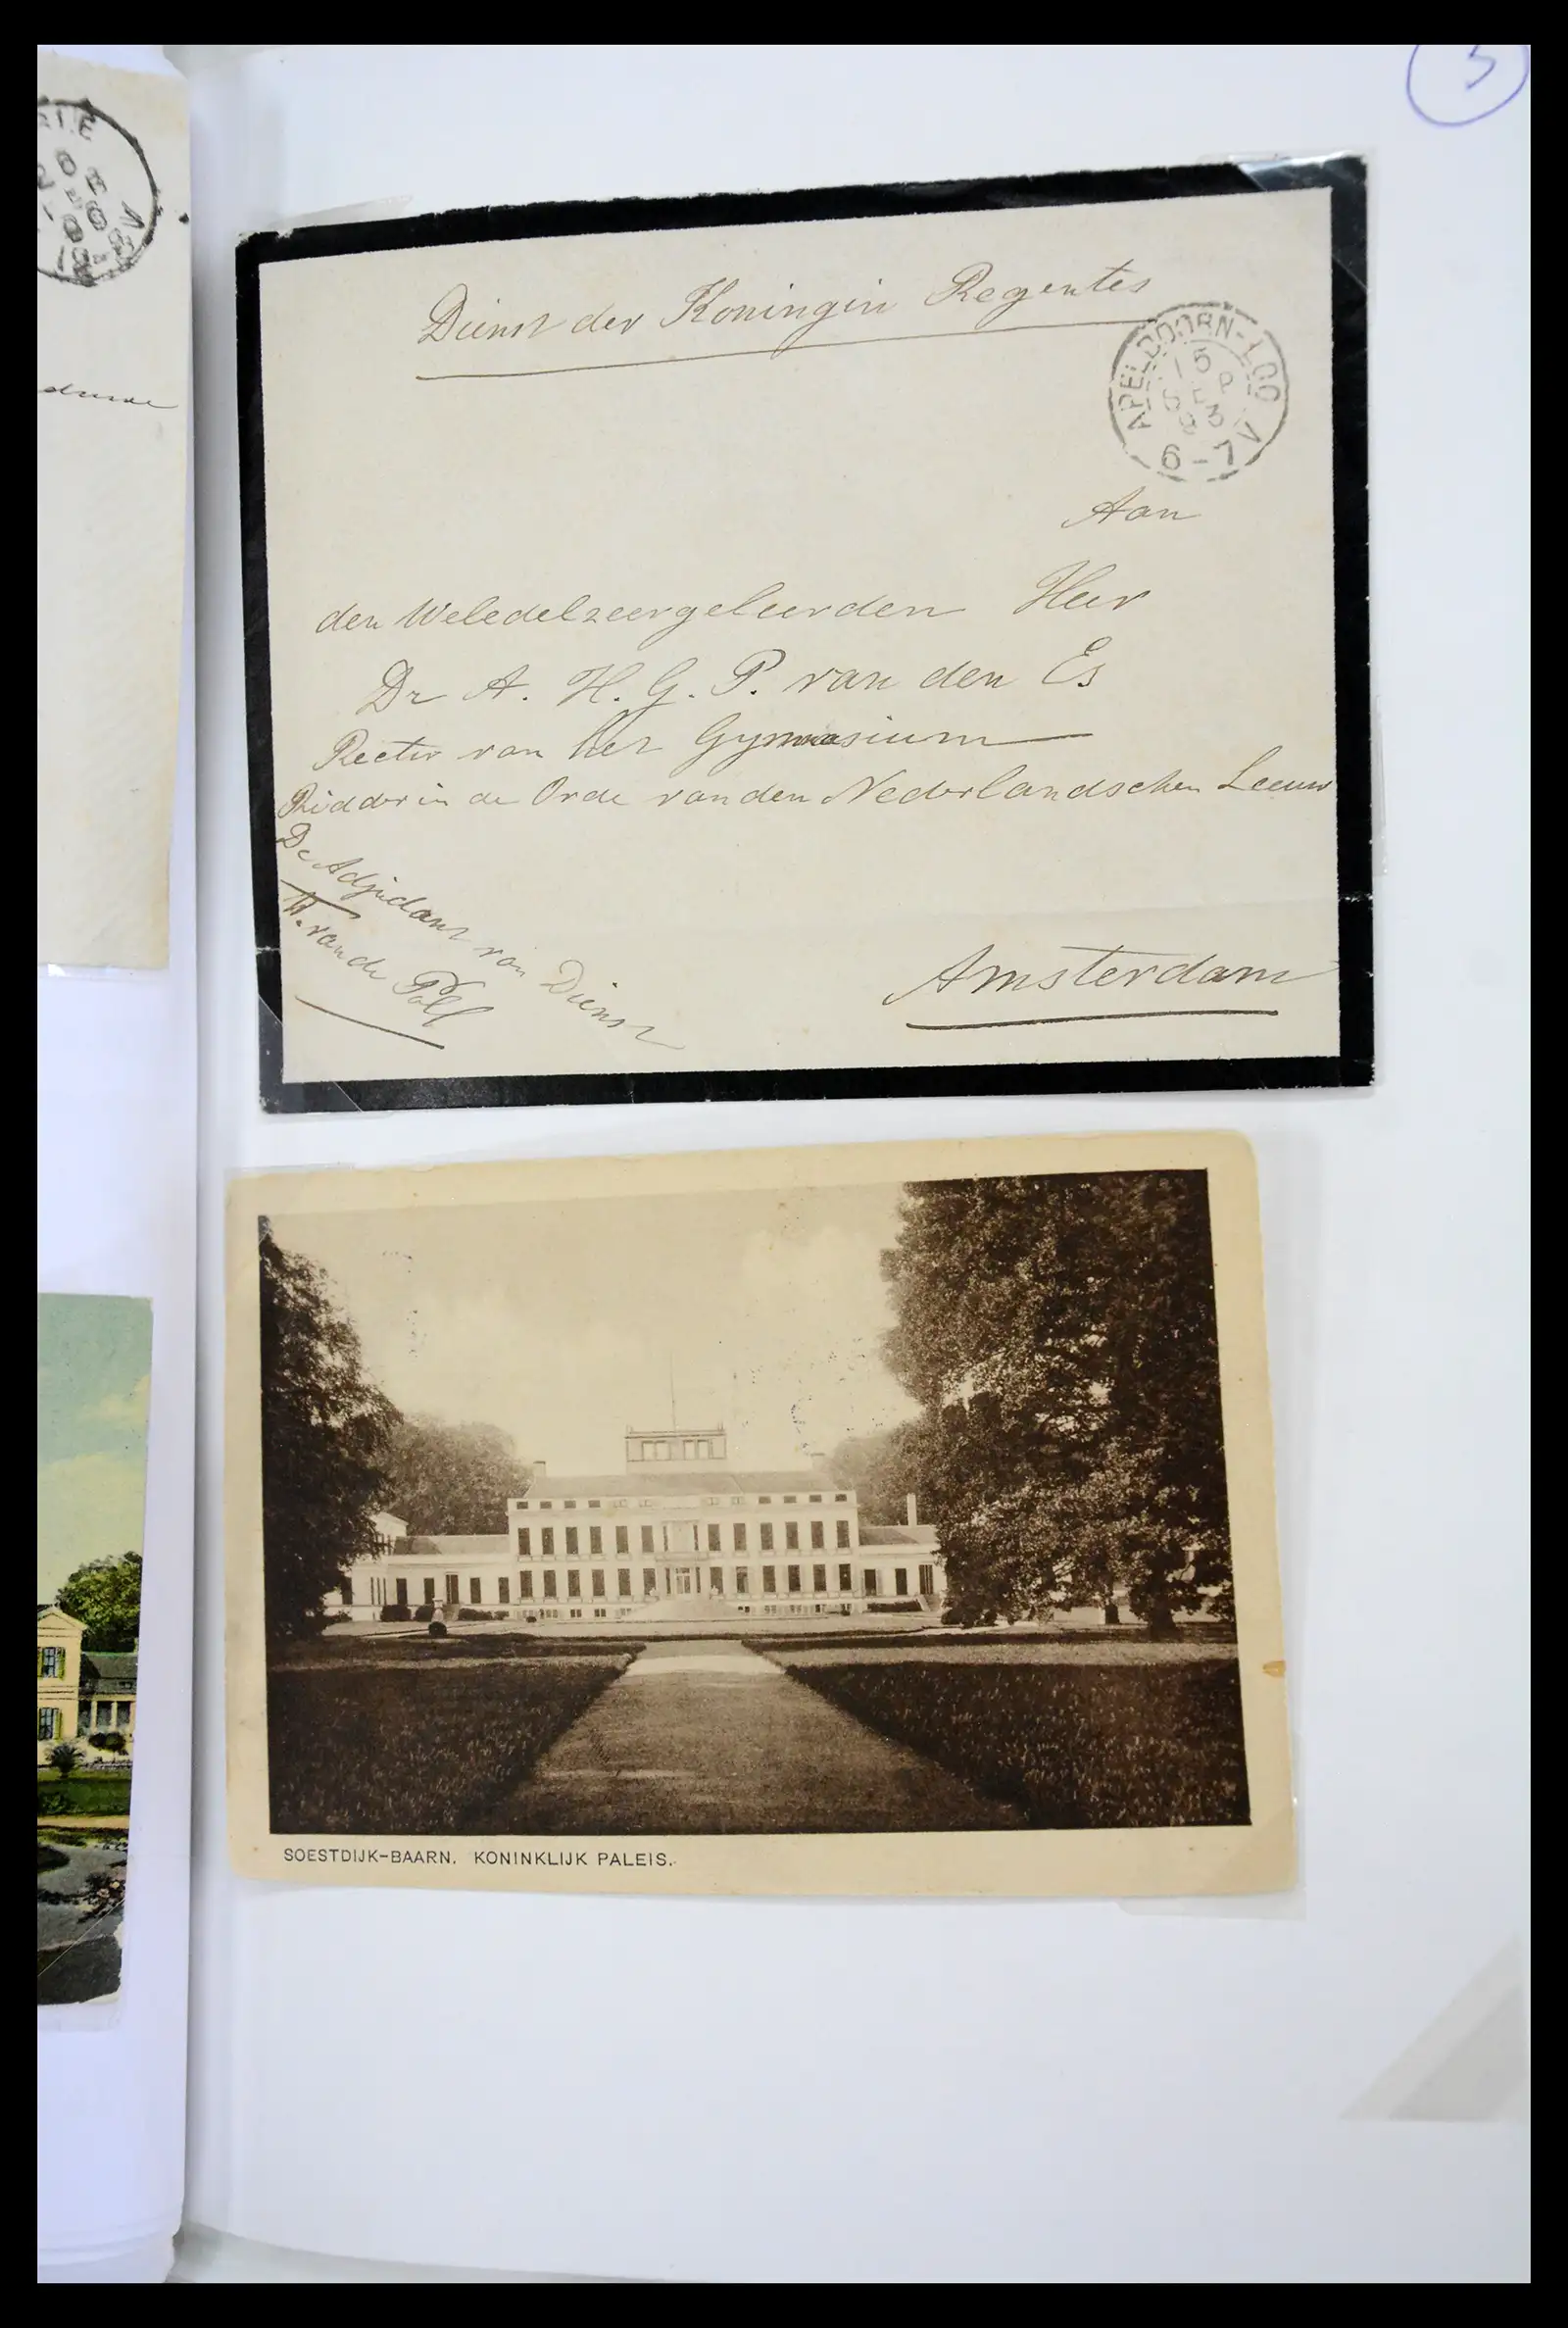 5
Dienst der Koningin Regentes
APELDOORN-LOO
15
SEP
93
6-7 V
Aan
den Weledelzeergeleerden Heer
Dr A. H. G. P. van den Es
Rector van het Gymnasium
Ridder in de Orde van den Nederlandschen Leeuw
De Adjudant van Dienst
W. van de Poll
Amsterdam
SOESTDIJK-BAARN. KONINKLIJK PALEIS.